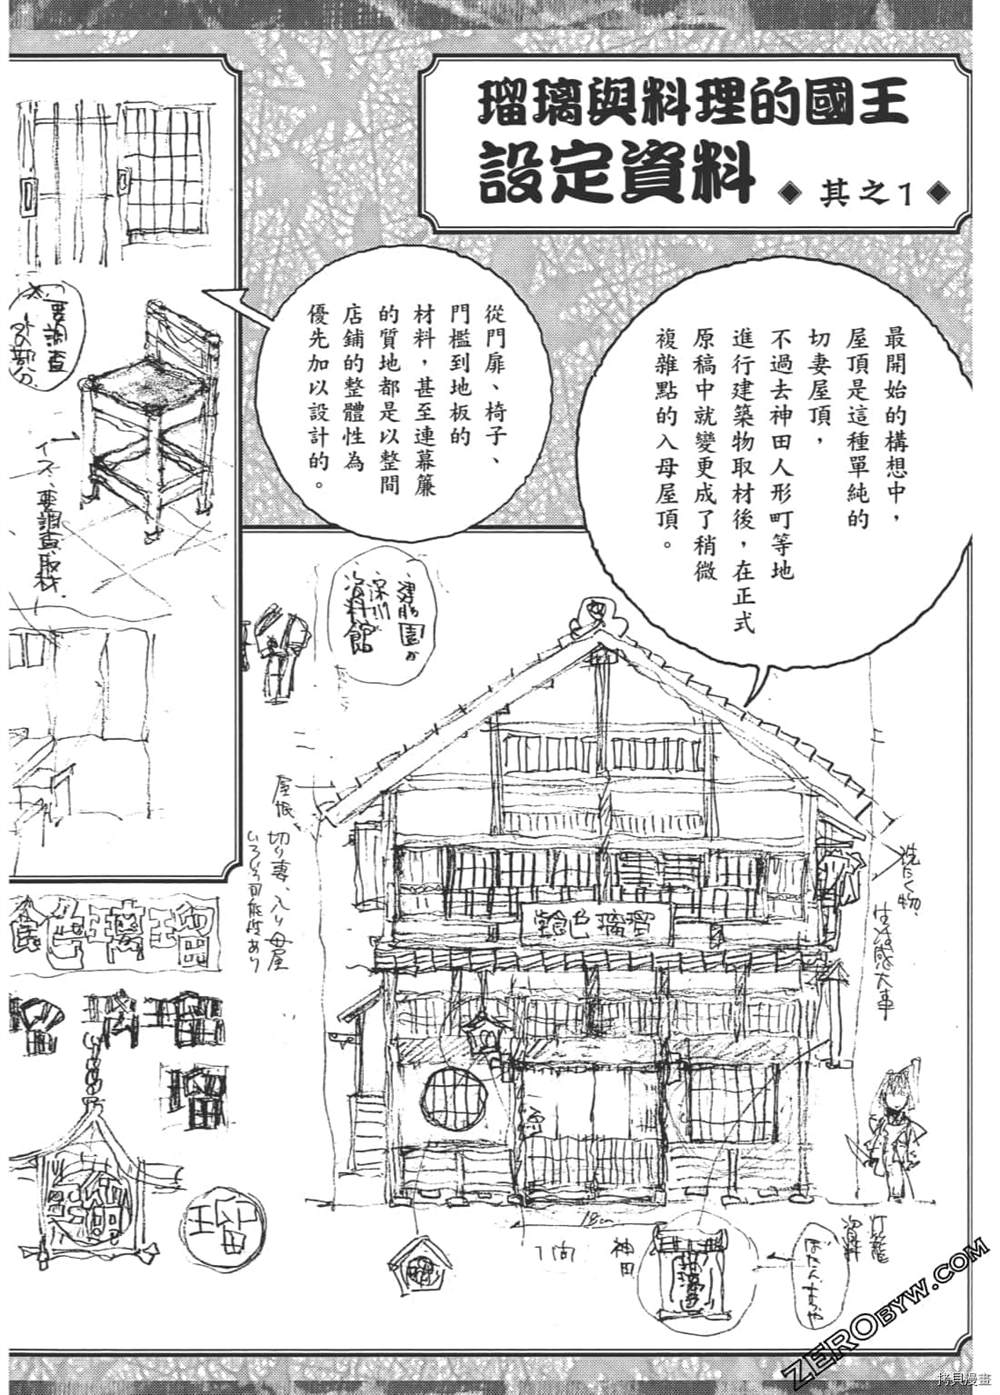 瑠璃與料理的國王
設定資料 ◆ 其之1 ◆
最開始的構想中，
屋頂是這種單純的
切妻屋頂，
不過去神田人形町等地
進行建築物取材後，在正式
原稿中就變更成了稍微
複雜點的入母屋頂。
從門扉、椅子、
門檻到地板的
材料，甚至連幕簾
的質地都是以整間
店鋪的整體性為
優先加以設計的。
要調査
イス、要調査、取材.
深川
資料館
屋根 切り妻、入り母屋
いろいろ可能性あり
洗たく物、
生活感大事
瑠璃色飯
神田
灯籠
資料
1間
ZEROBYW.COM
拷貝漫畫